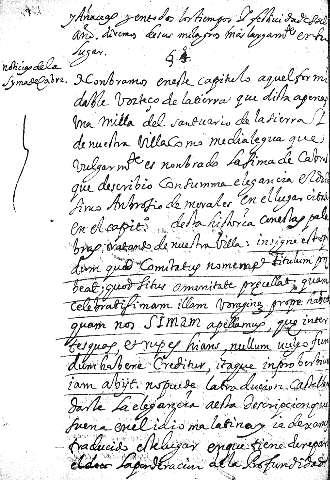 y Anacego y en todos los tiempos
años. diremos de sus milagros mas largamte. en su
lugar.
§
noticias de la
Syma de Cabra.
Nombramos en este capitulo aquel formi
dable vortice de la tierra que dista apenas
una milla del santuario de la sierra
de nuestra Villa como media legua que
vulgarmte. es nombrado la sima de Cabra
que describio con summa elegancia el
Ambrosio de morales en el lugar citado
en el capito. desta historia con estas pala
bras tratando de nuestra Villa: insigne est op
dum quod Comitatus nomen et titulum pr
beat; quod situs amænitate præcellat, quam
celebratissimam illam Voragine prope habeat
quam nos SIMAM apellamus, quæ inter
tesquos, et rupes hians, nullum usque fun
dum habere Creditur, itaque in proberbium
iam abijt. no puede la traduccion Castellana
darle la elegancia a esta descripcion que
suena en el idioma latino, y ia dexamos
traducido este lugar en que tiene de repara
el docto la ponderacion de la Profundidad